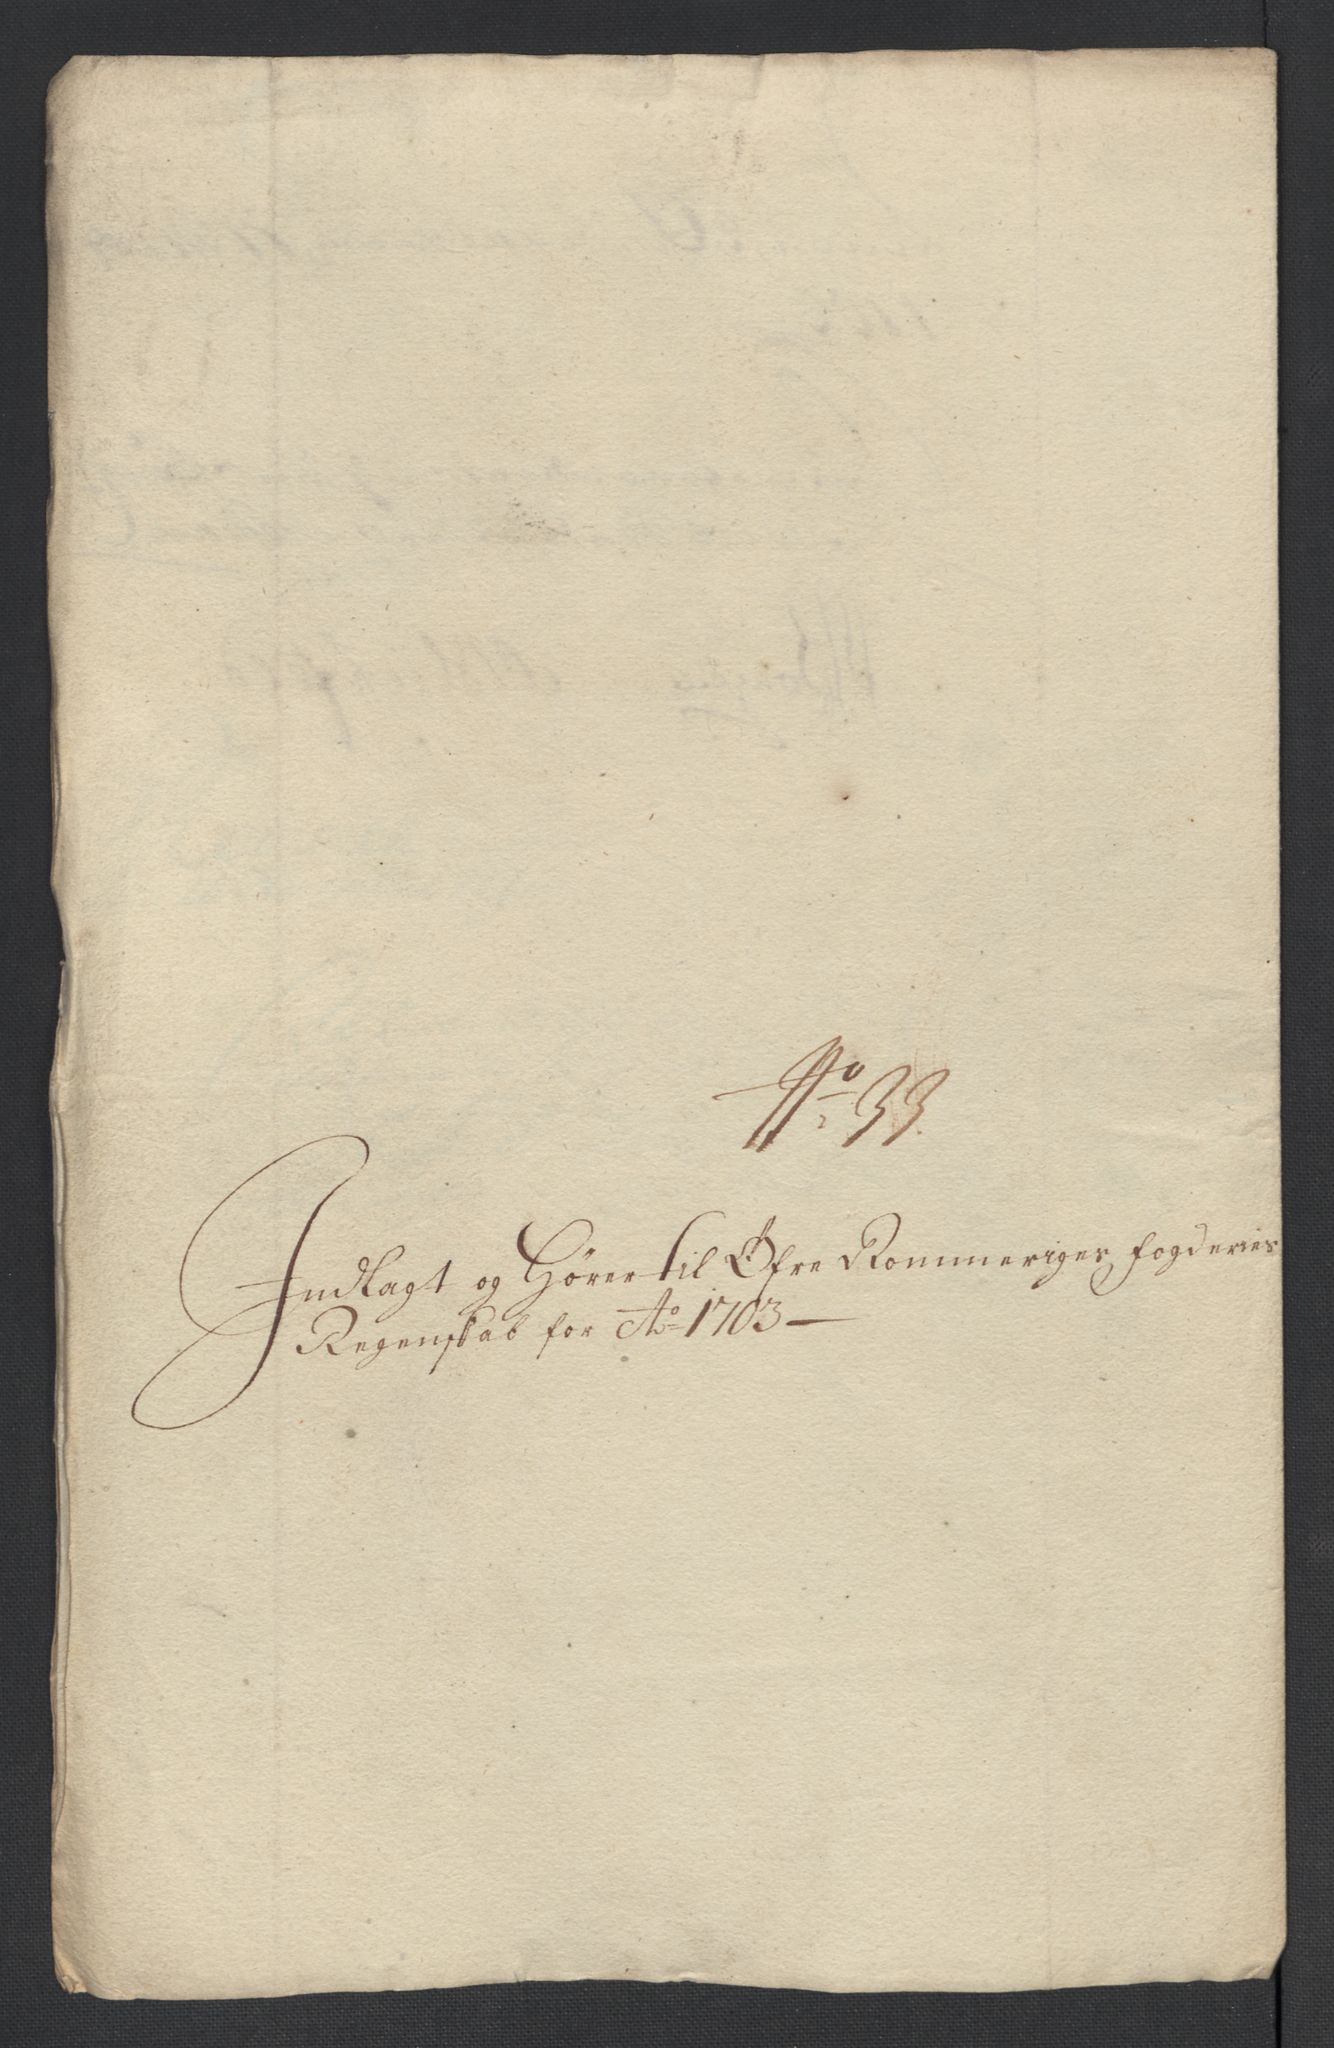 No 33.
Indlagt og Hører til Øfre Rommeriges fogderies
Regenskab for Ao 1703